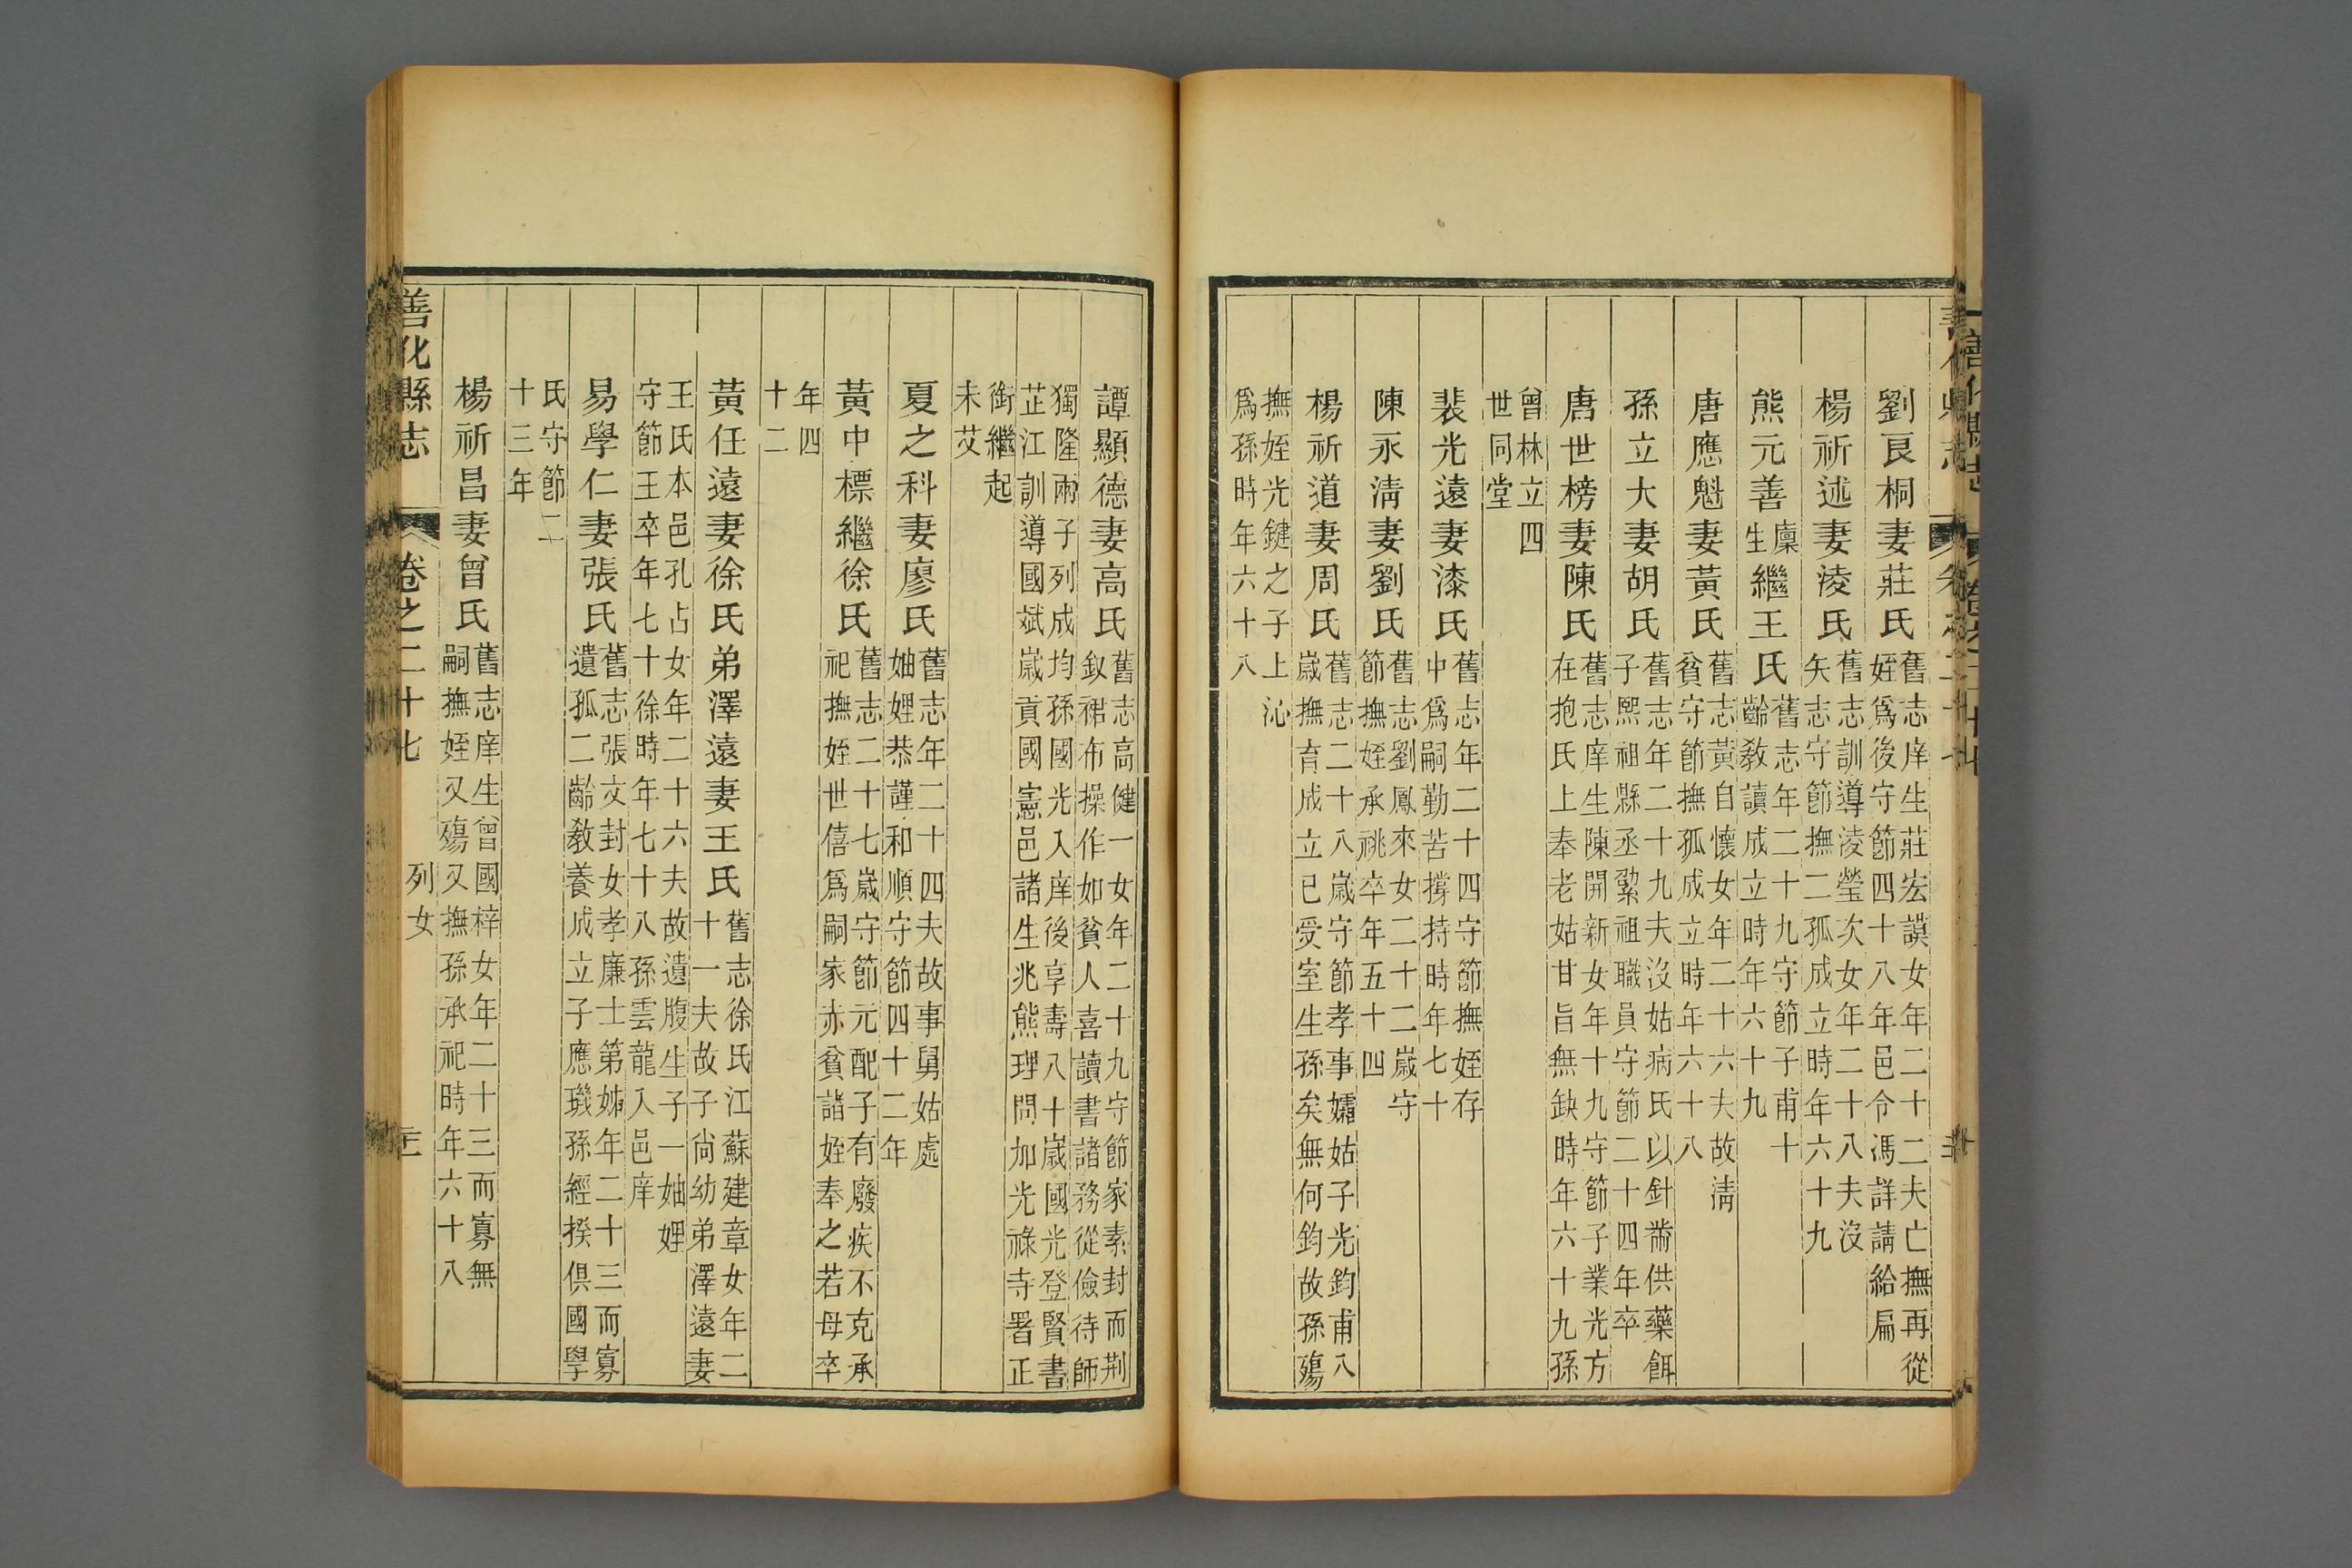 劉艮桐妻莊氏舊志庠生莊宏謨女年二十二夫亡撫再從
姪爲後守節四十八年邑令馮詳請給扁
楊祈述妻淩氏舊志訓導淩瑩次女年二十八夫沒
矢志守節撫二孤成立時年六十九
熊元善廩生繼王氏舊志年二十九守節子甫十
齡教讀成立時年六十九
唐應魁妻黃氏舊志黃自懷女年二十六夫故淸
貧守節撫孤成立時年六十八
孫立大妻胡氏舊志年二十九夫沒姑病氏以針黹供藥餌
子熙祖縣丞纍祖職員守節二十四年卒
唐世榜妻陳氏舊志庠生陳開新女年十九守節子業光方
在抱氏上奉老姑甘旨無缺時年六十九孫
曾林立四
世同堂
裴光遠妻漆氏舊志年二十四守節撫姪存
中爲嗣勤苦撐持時年七十
陳永淸妻劉氏舊志劉鳳來女二十二歲守
節撫姪承祧卒年五十四
楊祈道妻周氏舊志二十八歲守節孝事孀姑子光鈞甫八
歲撫育成立已受室生孫矣無何鈞故孫殤
撫姪光鍵之子上沁
爲孫時年六十八
譚顯德妻高氏舊志高健一女年二十九守節家素封而荆
釵裙布操作如貧人喜讀書諸務從儉待師
獨隆兩子列成均孫國光入庠後享壽八十歲國光登賢書
芷江訓導國斌歲貢國憲邑諸生兆熊理問加光祿寺署正
銜繼起
未艾
夏之科妻廖氏舊志年二十四夫故事舅姑處
妯娌恭謹和順守節四十二年
黃中標繼徐氏舊志二十七歲守節元配子有廢疾不克承
祀撫姪世僖爲嗣家赤貧諸姪奉之若母卒
年四
十二
黃任遠妻徐氏弟澤遠妻王氏舊志徐氏江蘇建章女年二
十一夫故子尙幼弟澤遠妻
王氏本邑孔占女年二十六夫故遺腹生子一妯娌
守節王卒年七十徐時年七十八孫雲龍入邑庠
易學仁妻張氏舊志張文封女孝廉士第姊年二十三而寡
遺孤二齡教養成立子應璣孫經揆俱國學
氏守節二
十三年
楊祈昌妻曾氏舊志庠生曾國梓女年二十三而寡無
嗣撫姪又殤又撫孫承祀時年六十八
善化縣志 卷之二十七 列女